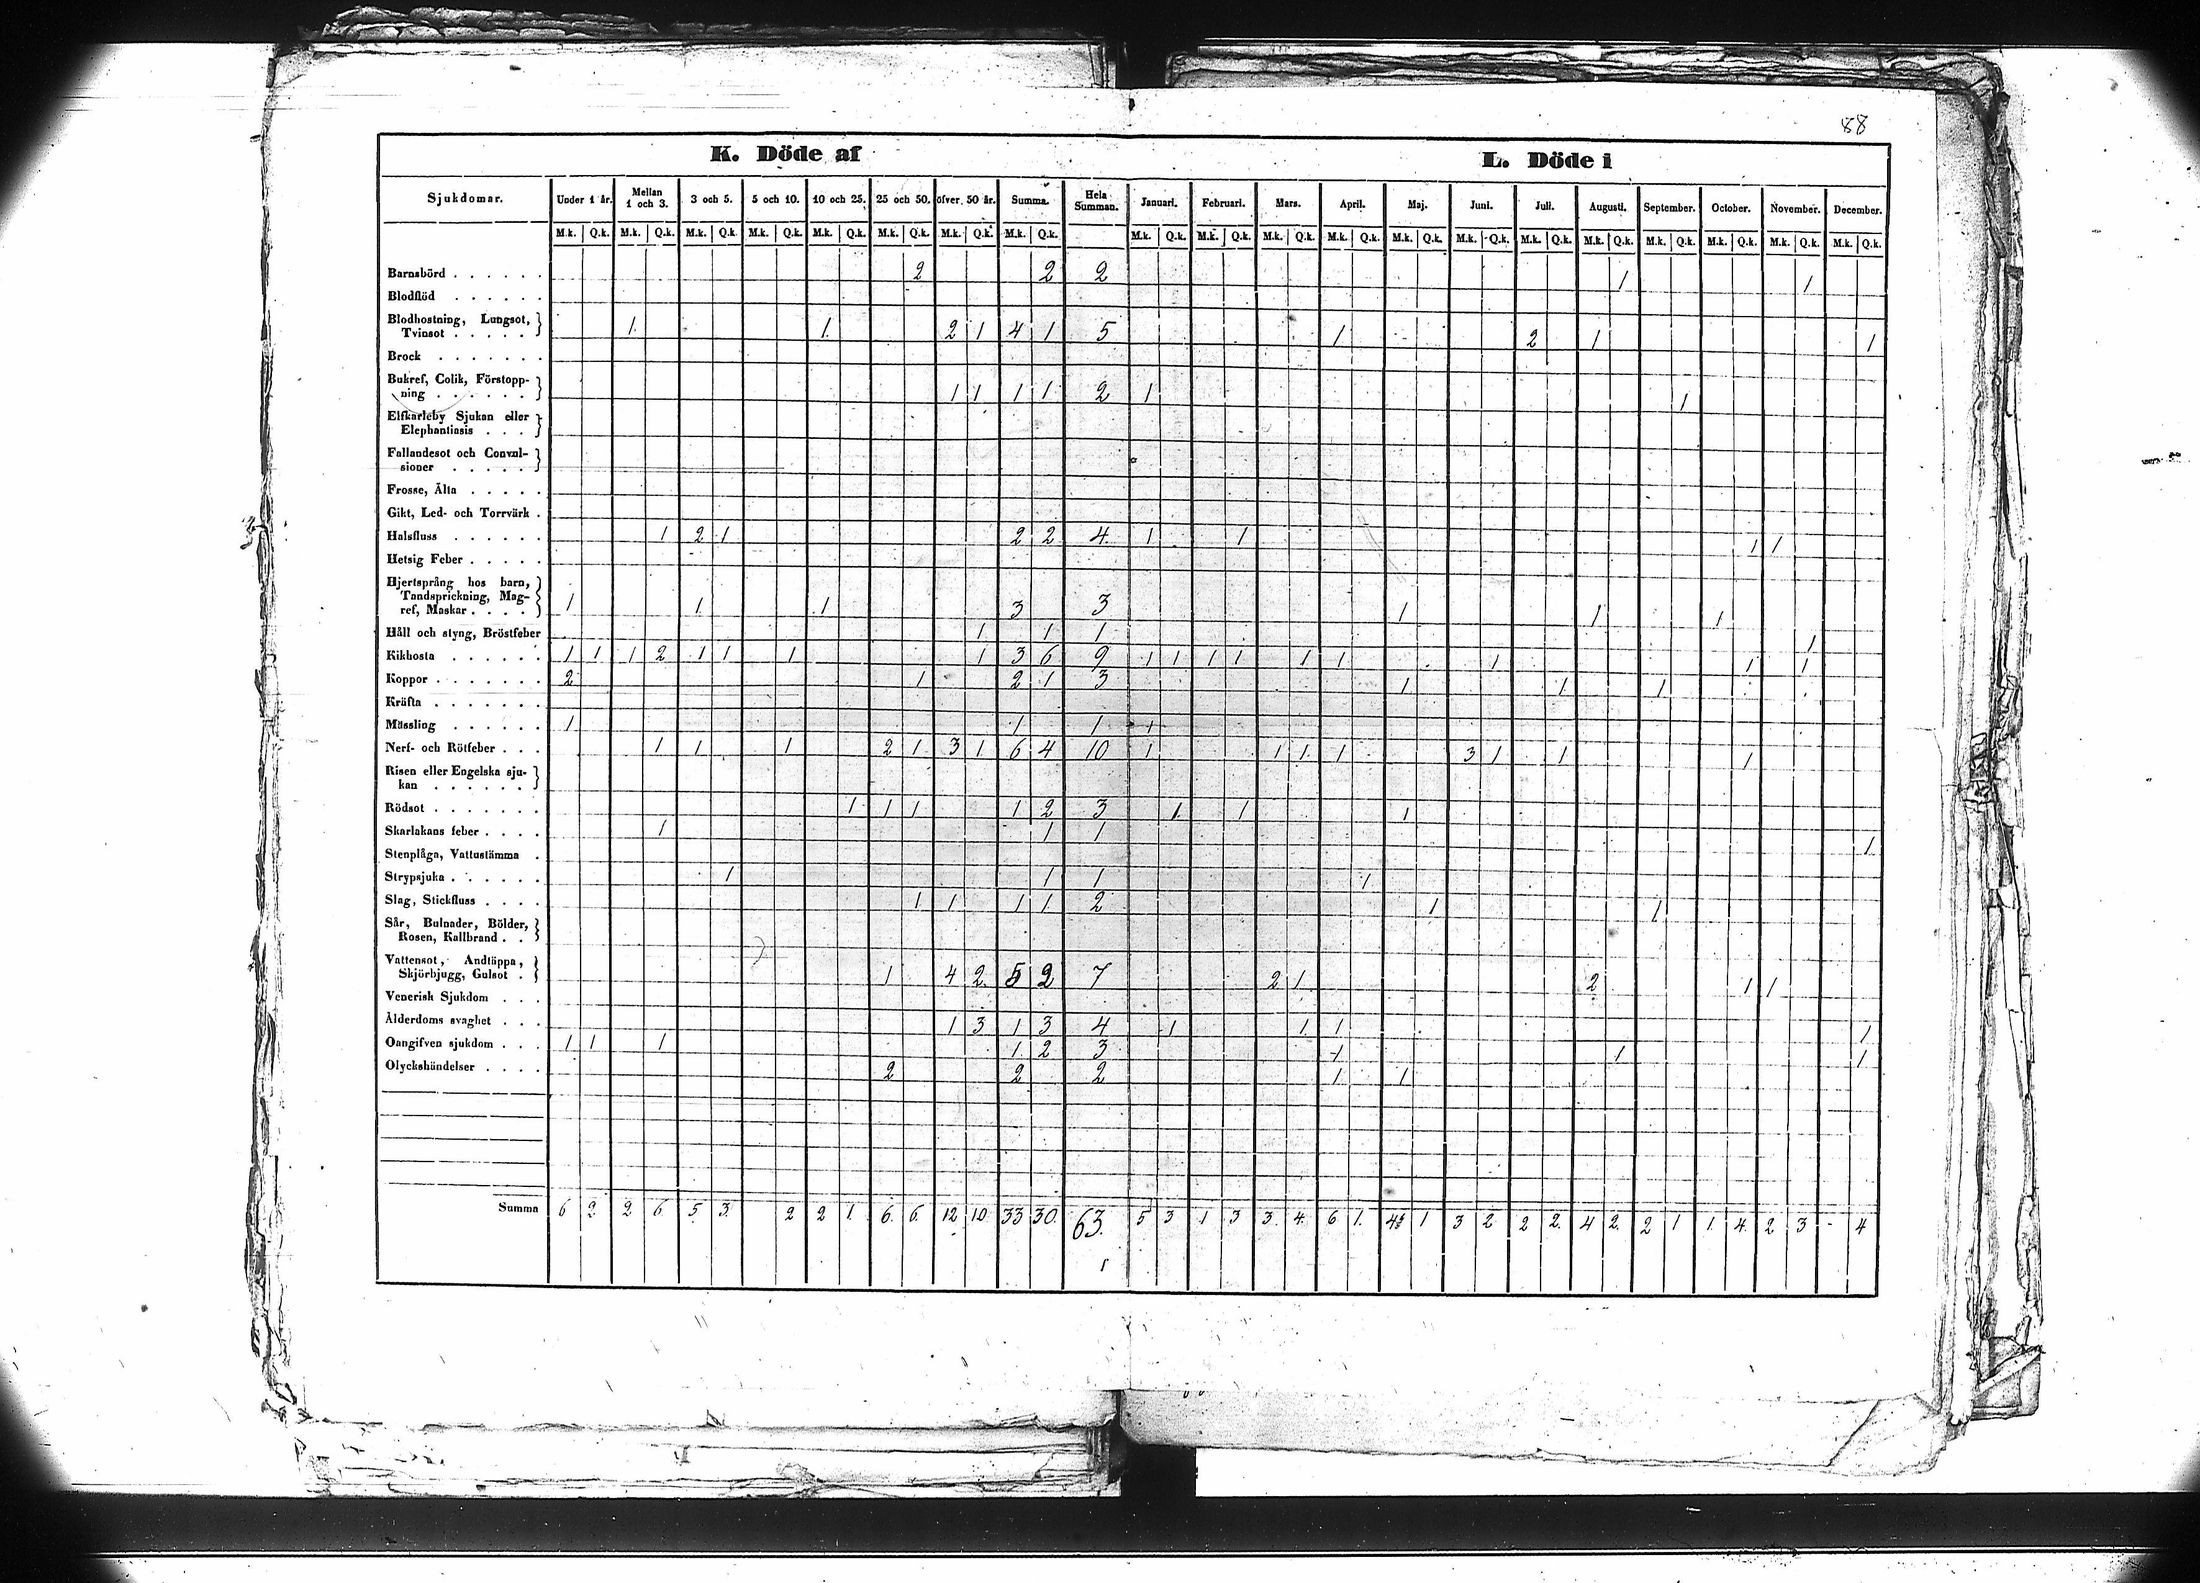 88
K. Döde af L. Döde i
Sjukdomar. Under 1 år. Mellan 1 och 3. 3 och 5. 5 och 10. 10 och 25. 25 och 50. öfver 50 år. Summa. Hela Summan. Januari. Februari. Mars. April. Maj. Juni. Juli. Augusti. September. October. November. December.
M.k. Q.k. M.k. Q.k. M.k. Q.k. M.k. Q.k. M.k. Q.k. M.k. Q.k. M.k. Q.k. M.k. Q.k. M.k. Q.k. M.k. Q.k. M.k. Q.k. M.k. Q.k. M.k. Q.k. M.k. Q.k. M.k. Q.k. M.k. Q.k. M.k. Q.k. M.k. Q.k. M.k. Q.k. M.k. Q.k.
Barnsbörd . . . . . . 2 2 2 1 1
Blodflöd . . . . . .
Blodhostning, Lungsot,
Tvinsot . . . . . 1. 1. 2 1 4 1 5 1 2 1 1
Brock . . . . . . .
Bukref, Colik, Förstopp-
ning . . . . . . 1 1 1 1 2 1 1
Elfkarleby Sjukan eller
Elephantiasis . . .
Fallandesot och Convul-
sioner . . . . .
Frosse, Älta . . . . .
Gikt, Led- och Torrvärk .
Halsfluss . . . . . . 1 2 1 2 2 4. 1 1 1 1
Hetsig Feber . . . . .
Hjertsprång hos barn,
Tandsprickning, Mag-
ref, Maskar . . . . 1 1 1 3 3 1 1 1
Håll och styng, Bröstfeber 1 1 1 1
Kikhosta . . . . . . 1 1 1 2 1 1 1 1 3 6 9 1 1 1 1 1 1 1 1 1
Koppor . . . . . . . 2 1 2 1 3 1 1 1
Kräfta . . . . . . .
Mässling . . . . . . 1 1 1 1
Nerf- och Rötfeber . . . 1 1 1 2 1 3 1 6 4 10 1 1 1 1 3 1 1 1
Risen eller Engelska sju-
kan . . . . . .
Rödsot . . . . . . . 1 1 1 1 2 3 1. 1 1
Skarlakans feber . . . . 1 1 1 1
Stenplåga, Vattustämma .
Strypsjuka . . . . . . 1 1 1 1
Slag, Stickfluss . . . . 1 1 1 1 2 1 1
Sår, Bulnader, Bölder,
Rosen, Kallbrand . .
Vattensot, Andtäppa,
Skjörbjugg, Gulsot . 1 4 2. 5 2 7 2 1 2 1 1
Venerisk Sjukdom . . .
Ålderdoms svaghet . . . 1 3 1 3 4 1 1. 1 1
Oangifven sjukdom . . . 1 1 1 1. 2 3 1 1 1
Olyckshändelser . . . . 2 2 2 1 1
Summa 6 2 2 6 5 3. 2 2 1. 6. 6. 12 10 33 30. 63. 5 3 1 3 3. 4. 6 1. 4 1 3 2 2 2. 4 2. 2 1 1. 4. 2 3 - 4